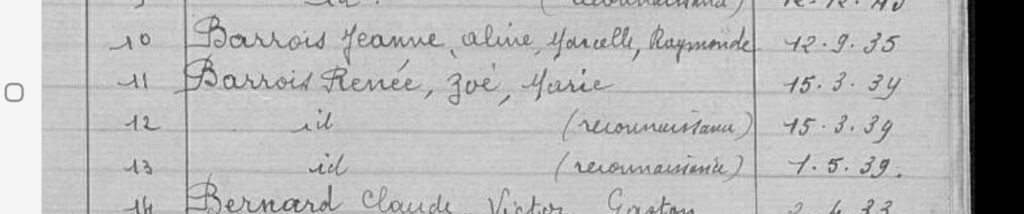 id. (reconnaissance) 12.12.40
10 Barrois Jeanne, Aline, Marcelle, Raymonde 12.9.35
11 Barrois Renée, Zoé, Marie 15.3.34
12 id (reconnaissance) 15.3.39
13 id (reconnaissance) 1.5.39.
14 Bernard Claude Victor Gaston 2.4.33